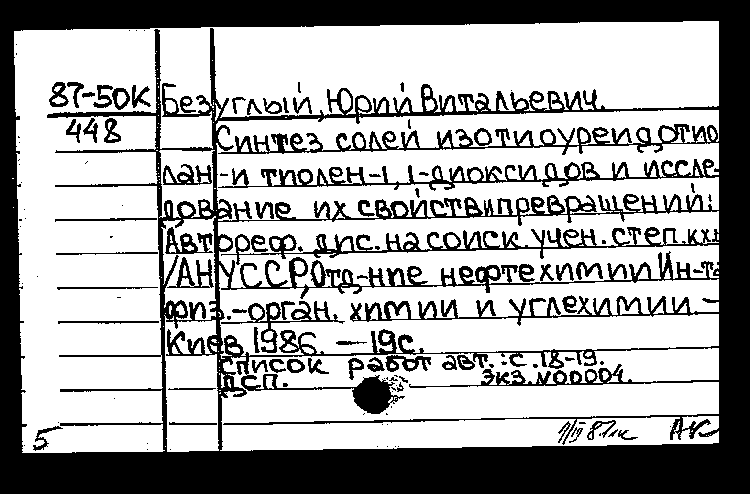 87-50К Безуглый, Юрий Витальевич.
448 Синтез солей изотиоуреидотио
лан-и тиолен-1, 1-диоксидов и иссле-
дование их свойств и превращений:
Автореф. дис. на соиск. учен. степ. к.х.н
/АН УССР, Отд-ние нефтехимии Ин-та
физ.-орган. химии и углехимии.-
Киев, 1986. - 19с.
список работ авт.: с. 18-19.
ДСП. экз. N00004.
5 АК